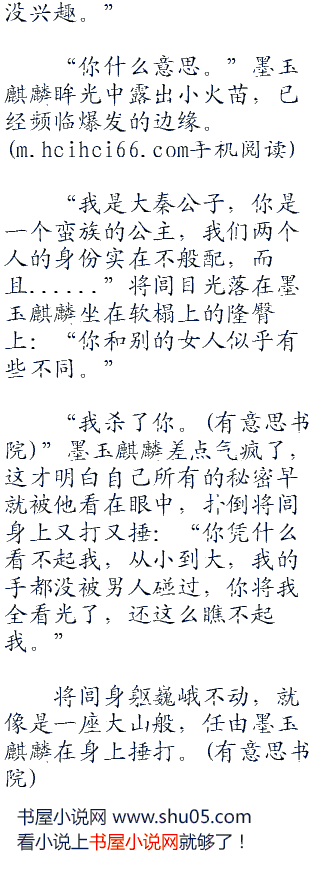 没兴趣。”
“你什么意思。”墨玉
麒麟眸光中露出小火苗，已
经频临爆发的边缘。
(m.hcihci66.com手机阅读)
“我是大秦公子，你是
一个蛮族的公主，我们两个
人的身份实在不般配，而
且......”将闾目光落在墨
玉麒麟坐在软榻上的隆臀
上：“你和别的女人似乎有
些不同。”
“我杀了你。(有意思书
院)”墨玉麒麟差点气疯了，
这才明白自己所有的秘密早
就被他看在眼中，扑倒将闾
身上又打又捶：“你凭什么
看不起我，从小到大，我的
手都没被男人碰过，你将我
全看光了，还这么瞧不起
我。”
将闾身躯巍峨不动，就
像是一座大山般，任由墨玉
麒麟在身上捶打。(有意思书
院)
书屋小说网 www.shu05.com
看小说上书屋小说网就够了！